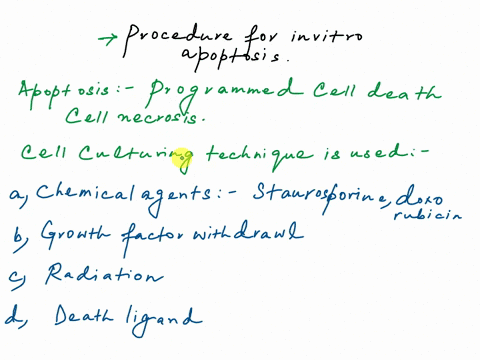 → Procedure for invitro
apoptosis.
Apoptosis :- Programmed Cell death
Cell necrosis.
Cell Culturing technique is used :-
a, Chemical agents :- Staurosporine, doxo
rubicin
b, Growth factor withdrawl
c, Radiation
d, Death ligand